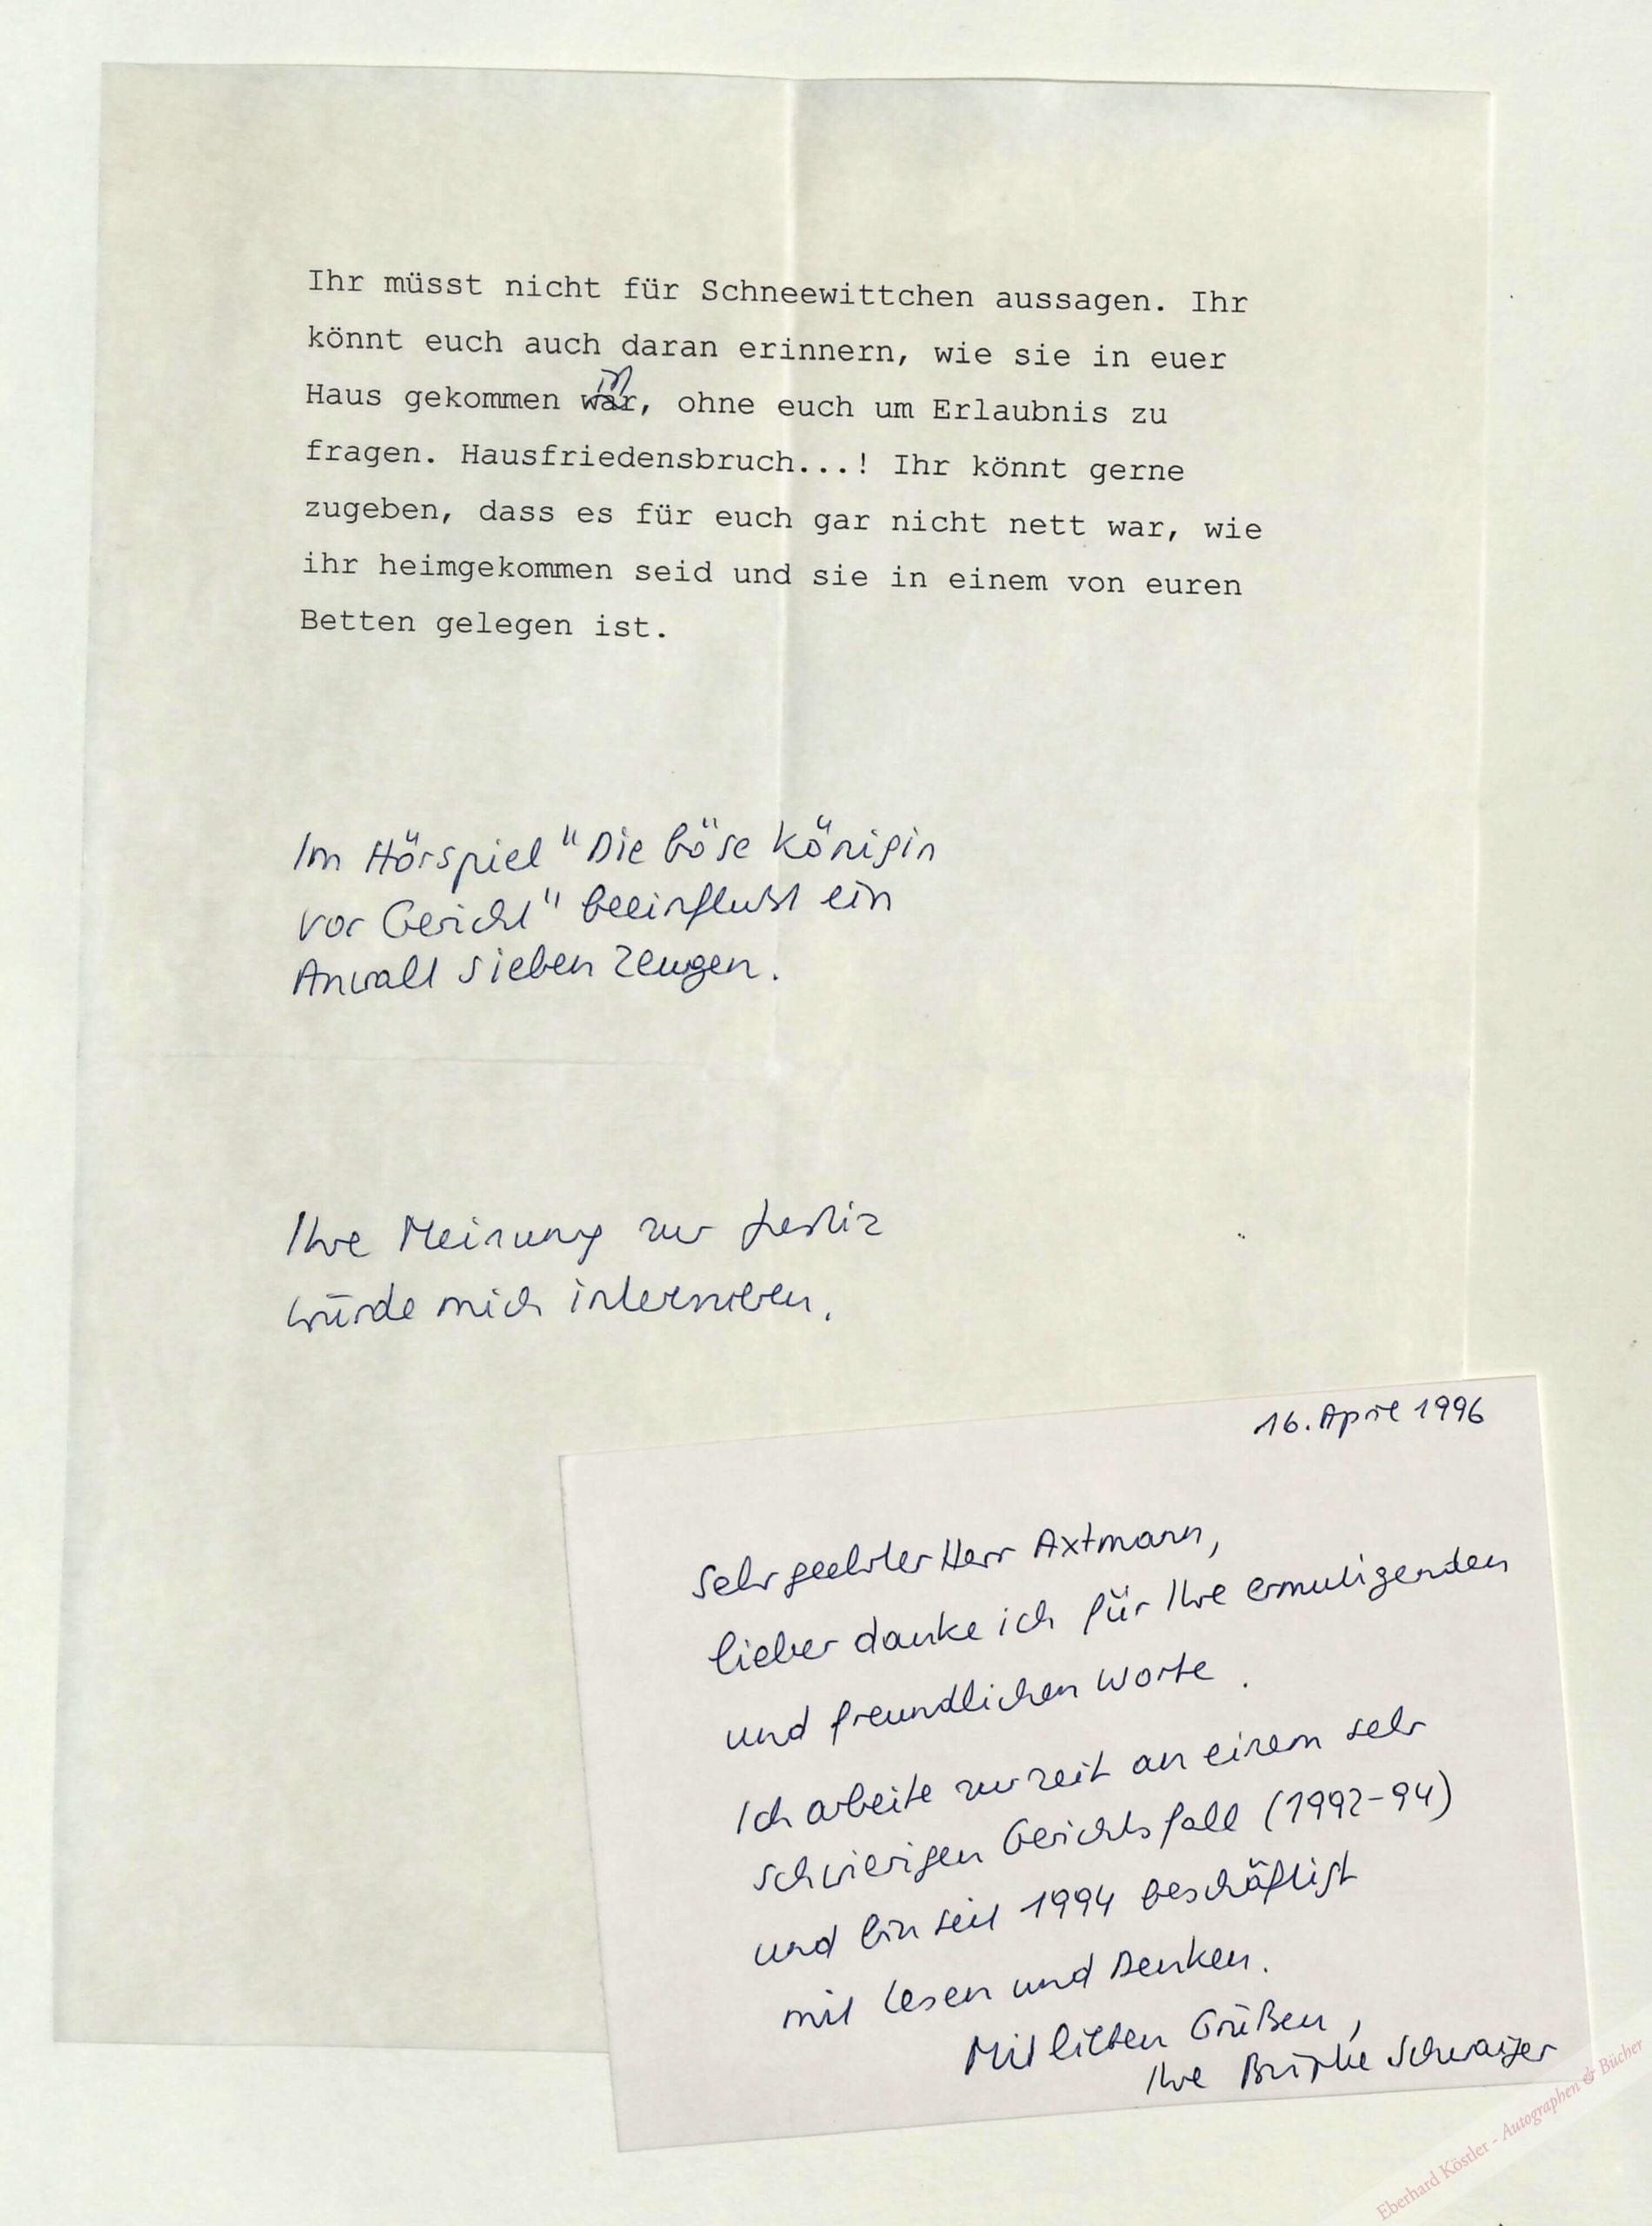 Ihr müsst nicht für Schneewittchen aussagen. Ihr
könnt euch auch daran erinnern, wie sie in euer
Haus gekommen ist, ohne euch um Erlaubnis zu
fragen. Hausfriedensbruch...! Ihr könnt gerne
zugeben, dass es für euch gar nicht nett war, wie
ihr heimgekommen seid und sie in einem von euren
Betten gelegen ist.
Im Hörspiel "Die böse Königin
vor Gericht" beeinflußt ein
Anwalt sieben Zeugen.
Ihre Meinung zur Justiz
würde mich interessieren.
16. April 1996
Sehr geehrter Herr Axtmann,
lieber danke ich für Ihre ermutigenden
und freundlichen Worte.
Ich arbeite zur Zeit an einem sehr
schwierigen Gerichtsfall (1992-94)
und bin seit 1994 beschäftigt
mit Lesen und Denken.
Mit lieben Grüßen,
Ihre Brigitte Schwaiger
Eberhard Köstler - Autographen & Bücher